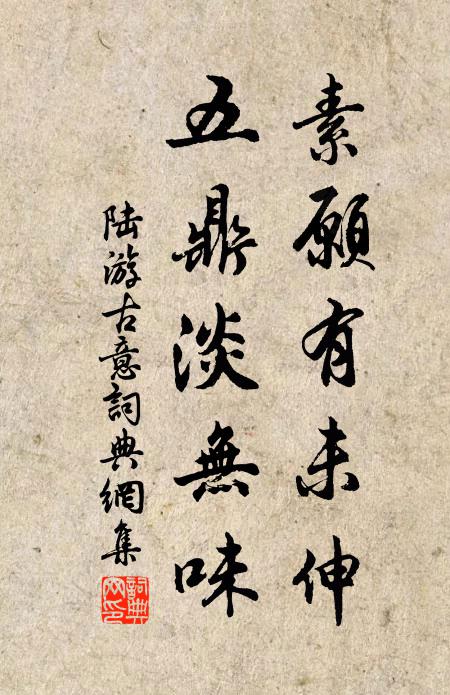 素願有未伸
五鼎淡無味
陆游古意詞典網集
詞典